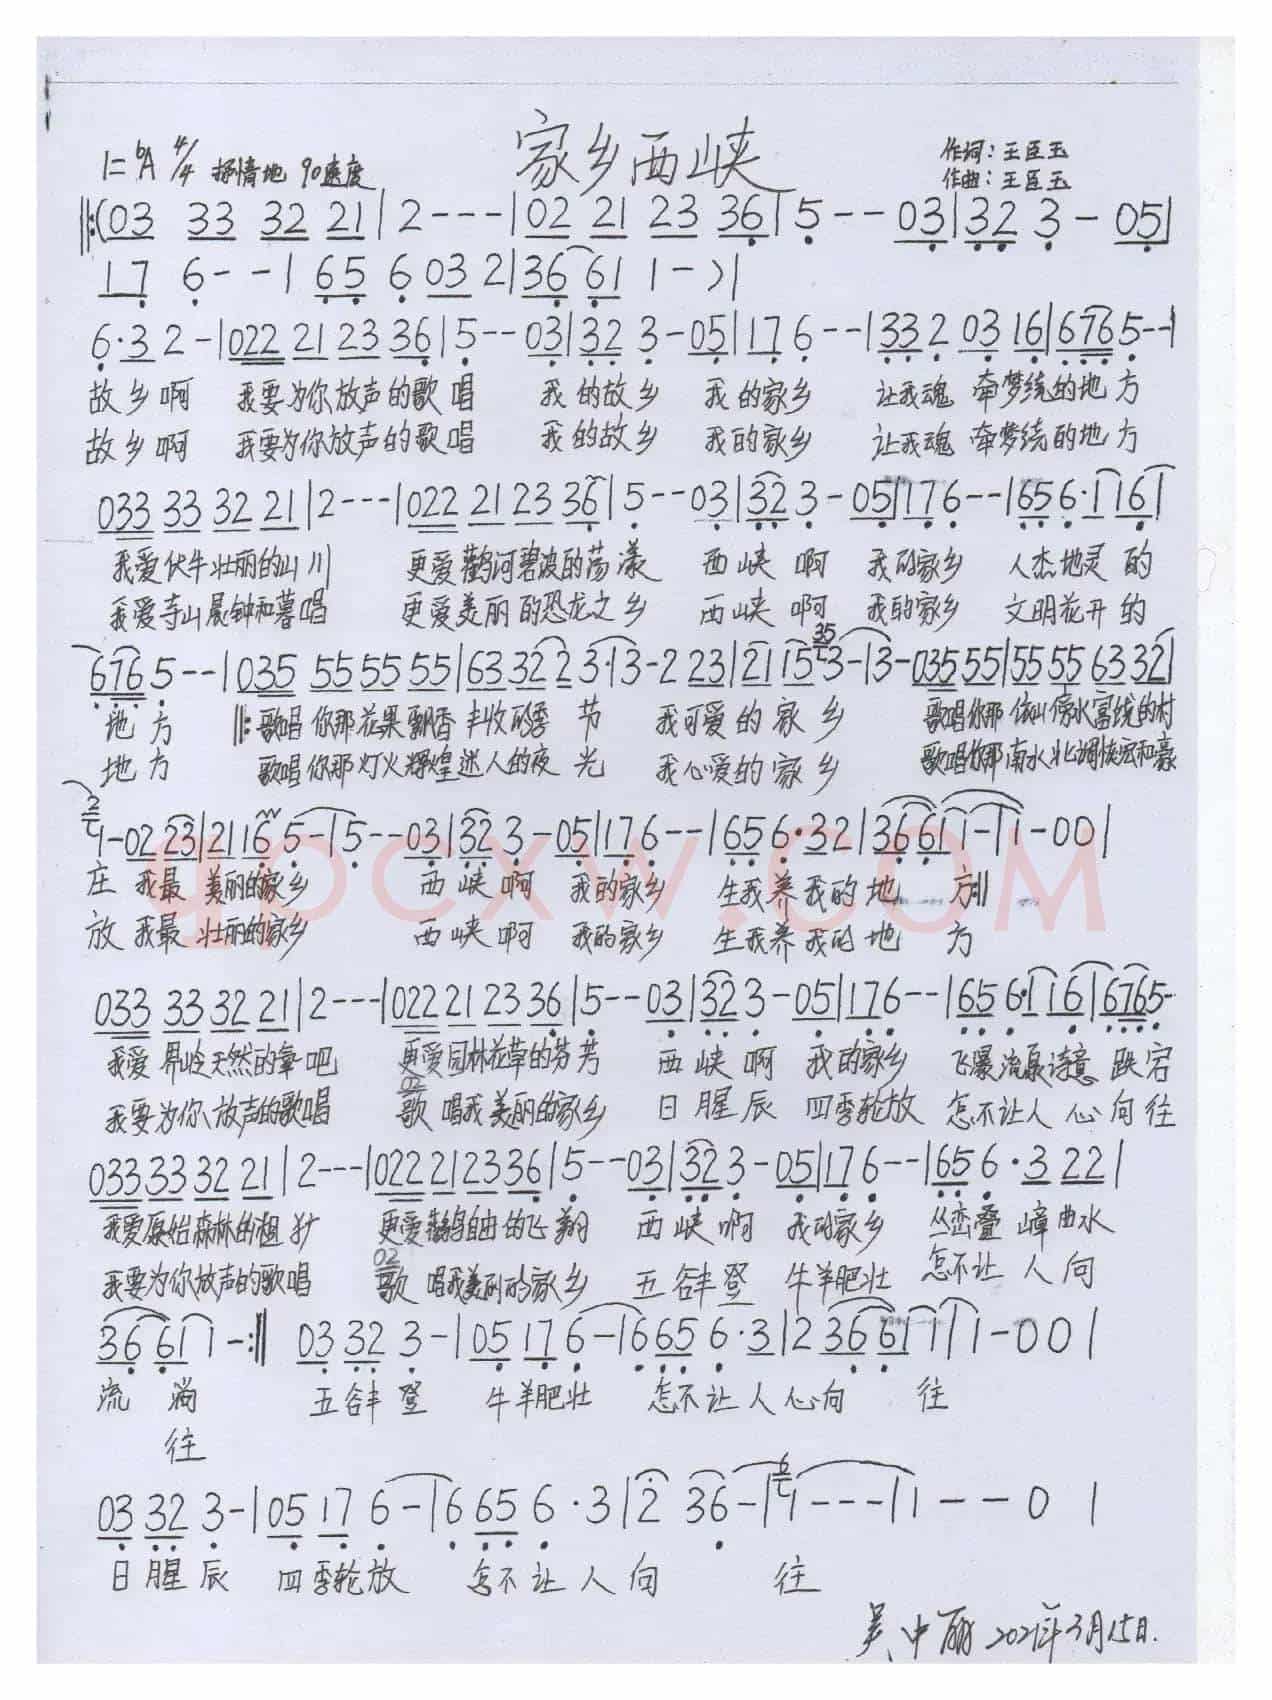 家乡西峡
1=ᵇA 4/4 抒情地 90速度
作词:王臣玉
作曲:王臣玉
‖:(03 33 32 21|2---|02 21 23 36|5--03|32 3-05|
17 6--|65 6 03 2|36 61 1-)|
6·3 2-|022 21 23 36|5--03|32 3-05|17 6--|33 2 03 16|676 5--|
故乡啊 我要为你放声的歌唱 我的故乡 我的家乡 让我魂 牵梦绕的地方
故乡啊 我要为你放声的歌唱 我的故乡 我的家乡 让我魂 牵梦绕的地方
033 33 32 21|2---|022 21 23 36|5--03|32 3-05|17 6--|65 6·1 16|
我爱伏牛壮丽的山川 更爱鹳河碧波的荡漾 西峡啊 我的家乡 人杰地灵的
我爱寺山晨钟和暮唱 更爱美丽的恐龙之乡 西峡啊 我的家乡 文明花开的
676 5--|035 55 55 55|63 32 2 3·1 3-2 23|21 15 35 3-|3-035 55|55 55 63 32|
地方 ‖:歌唱你那花果飘香丰收的季节 我可爱的家乡 歌唱你那依山傍水富饶的村
地方 歌唱你那灯火辉煌迷人的夜光 我心爱的家乡 歌唱你那南水北调恢宏和豪
2 1-02 23|21 16 5-|5--03|32 3-05|17 6--|65 6·32|36 61 1-|1-00|
庄 我最美丽的家乡 西峡啊 我的家乡 生我养我的地方:‖
放 我最壮丽的家乡 西峡啊 我的家乡 生我养我的地方
033 33 32 21|2---|022 21 23 36|5--03|32 3-05|17 6--|65 6·1 16|676 5-
我爱界岭天然的氧吧 更爱园林花草的芬芳 西峡啊 我的家乡 飞瀑流泉诗意跌宕
02
我要为你放声的歌唱 歌唱我美丽的家乡 日月星辰 四季轮放 怎不让人心向往
033 33 32 21|2---|022 21 23 36|5--03|32 3-05|17 6--|65 6·3 22|
我爱原始森林的粗犷 更爱鹳鸟自由的飞翔 西峡啊 我的家乡 丛峦叠嶂曲水
02
我要为你放声的歌唱 歌唱我美丽的家乡 五谷丰登 牛羊肥壮 怎不让人向
36 61 1-:‖ 03 32 3-|05 17 6-|665 6·3|2 36 61 1|1-00|
流淌 五谷丰登 牛羊肥壮 怎不让人心向往
往
03 32 3-|05 17 6-|6 65 6·3|2 36-|6 1---|1--0|
日月星辰 四季轮放 怎不让人向往
吴中丽 2021年3月15日.
gpcxw.com